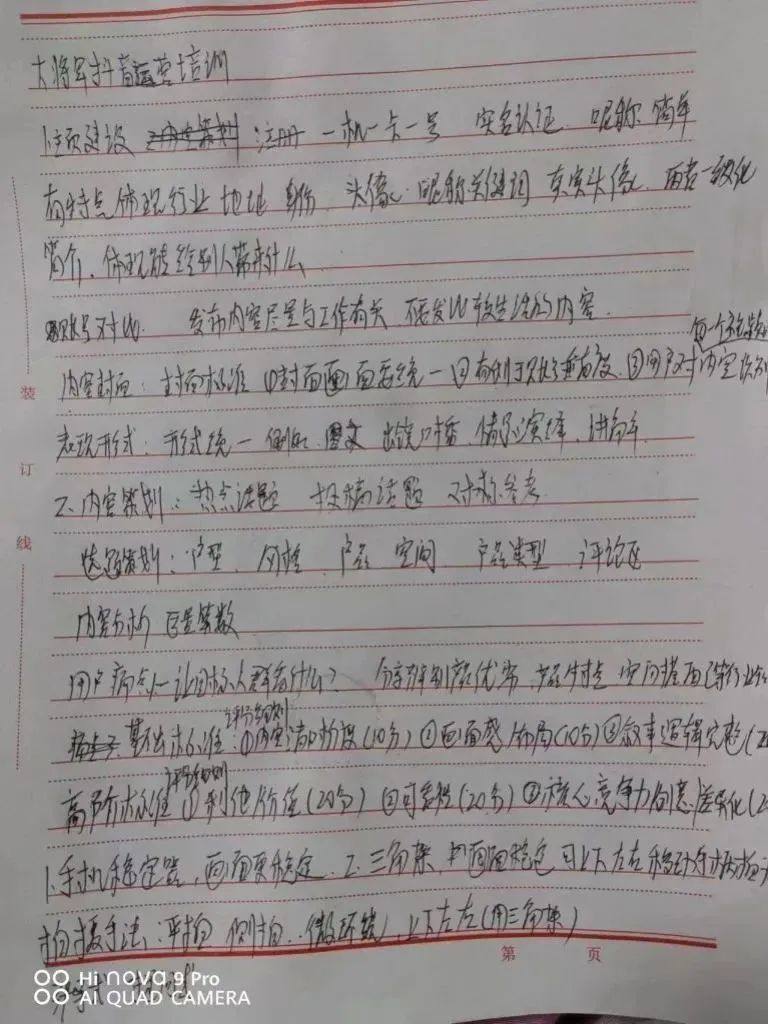 大将军抖音运营培训
1.主页建设 注册 一机一卡一号 实名认证 昵称 简单
有特点体现行业 地址 身份 头像 昵称关键词 真实头像 两者一致化
简介, 体现能给别人带来什么
账号对比 发布内容尽量与工作有关 不要发比较生活的内容
每一个
内容封面: 封面标准 ①封面画面要统一 ②有利于账号垂直度 ③用户对内容
表现形式: 形式统一 例如 图文 出镜口播 情景演绎 讲简单
2.内容策划: 热点话题 找痛话题 对标参考
选题策划: 户型 风格 产品 空间 产品类型 评论区
内容分析 巨量算数
用户痛点—让目标人群看什么? 分享 产品优劣 产品特点 空间搭配
评分细则
基础标准: ①内容 (10分) ②画面感 布局(10分) ③叙事逻辑完整(2
评分细则
高阶标准 ①利他价值(20分) ②可看性(20分) ③核心竞争力创意/差异化(2
1.手机稳定器, 画面更稳定 2.三角架, 画面稳定 可上下左右移动
拍摄手法: 平拍 侧拍 微环绕, 上下左右(用三角架)
装
订
线
第 页
Hi nova 9 Pro
AI QUAD CAMERA